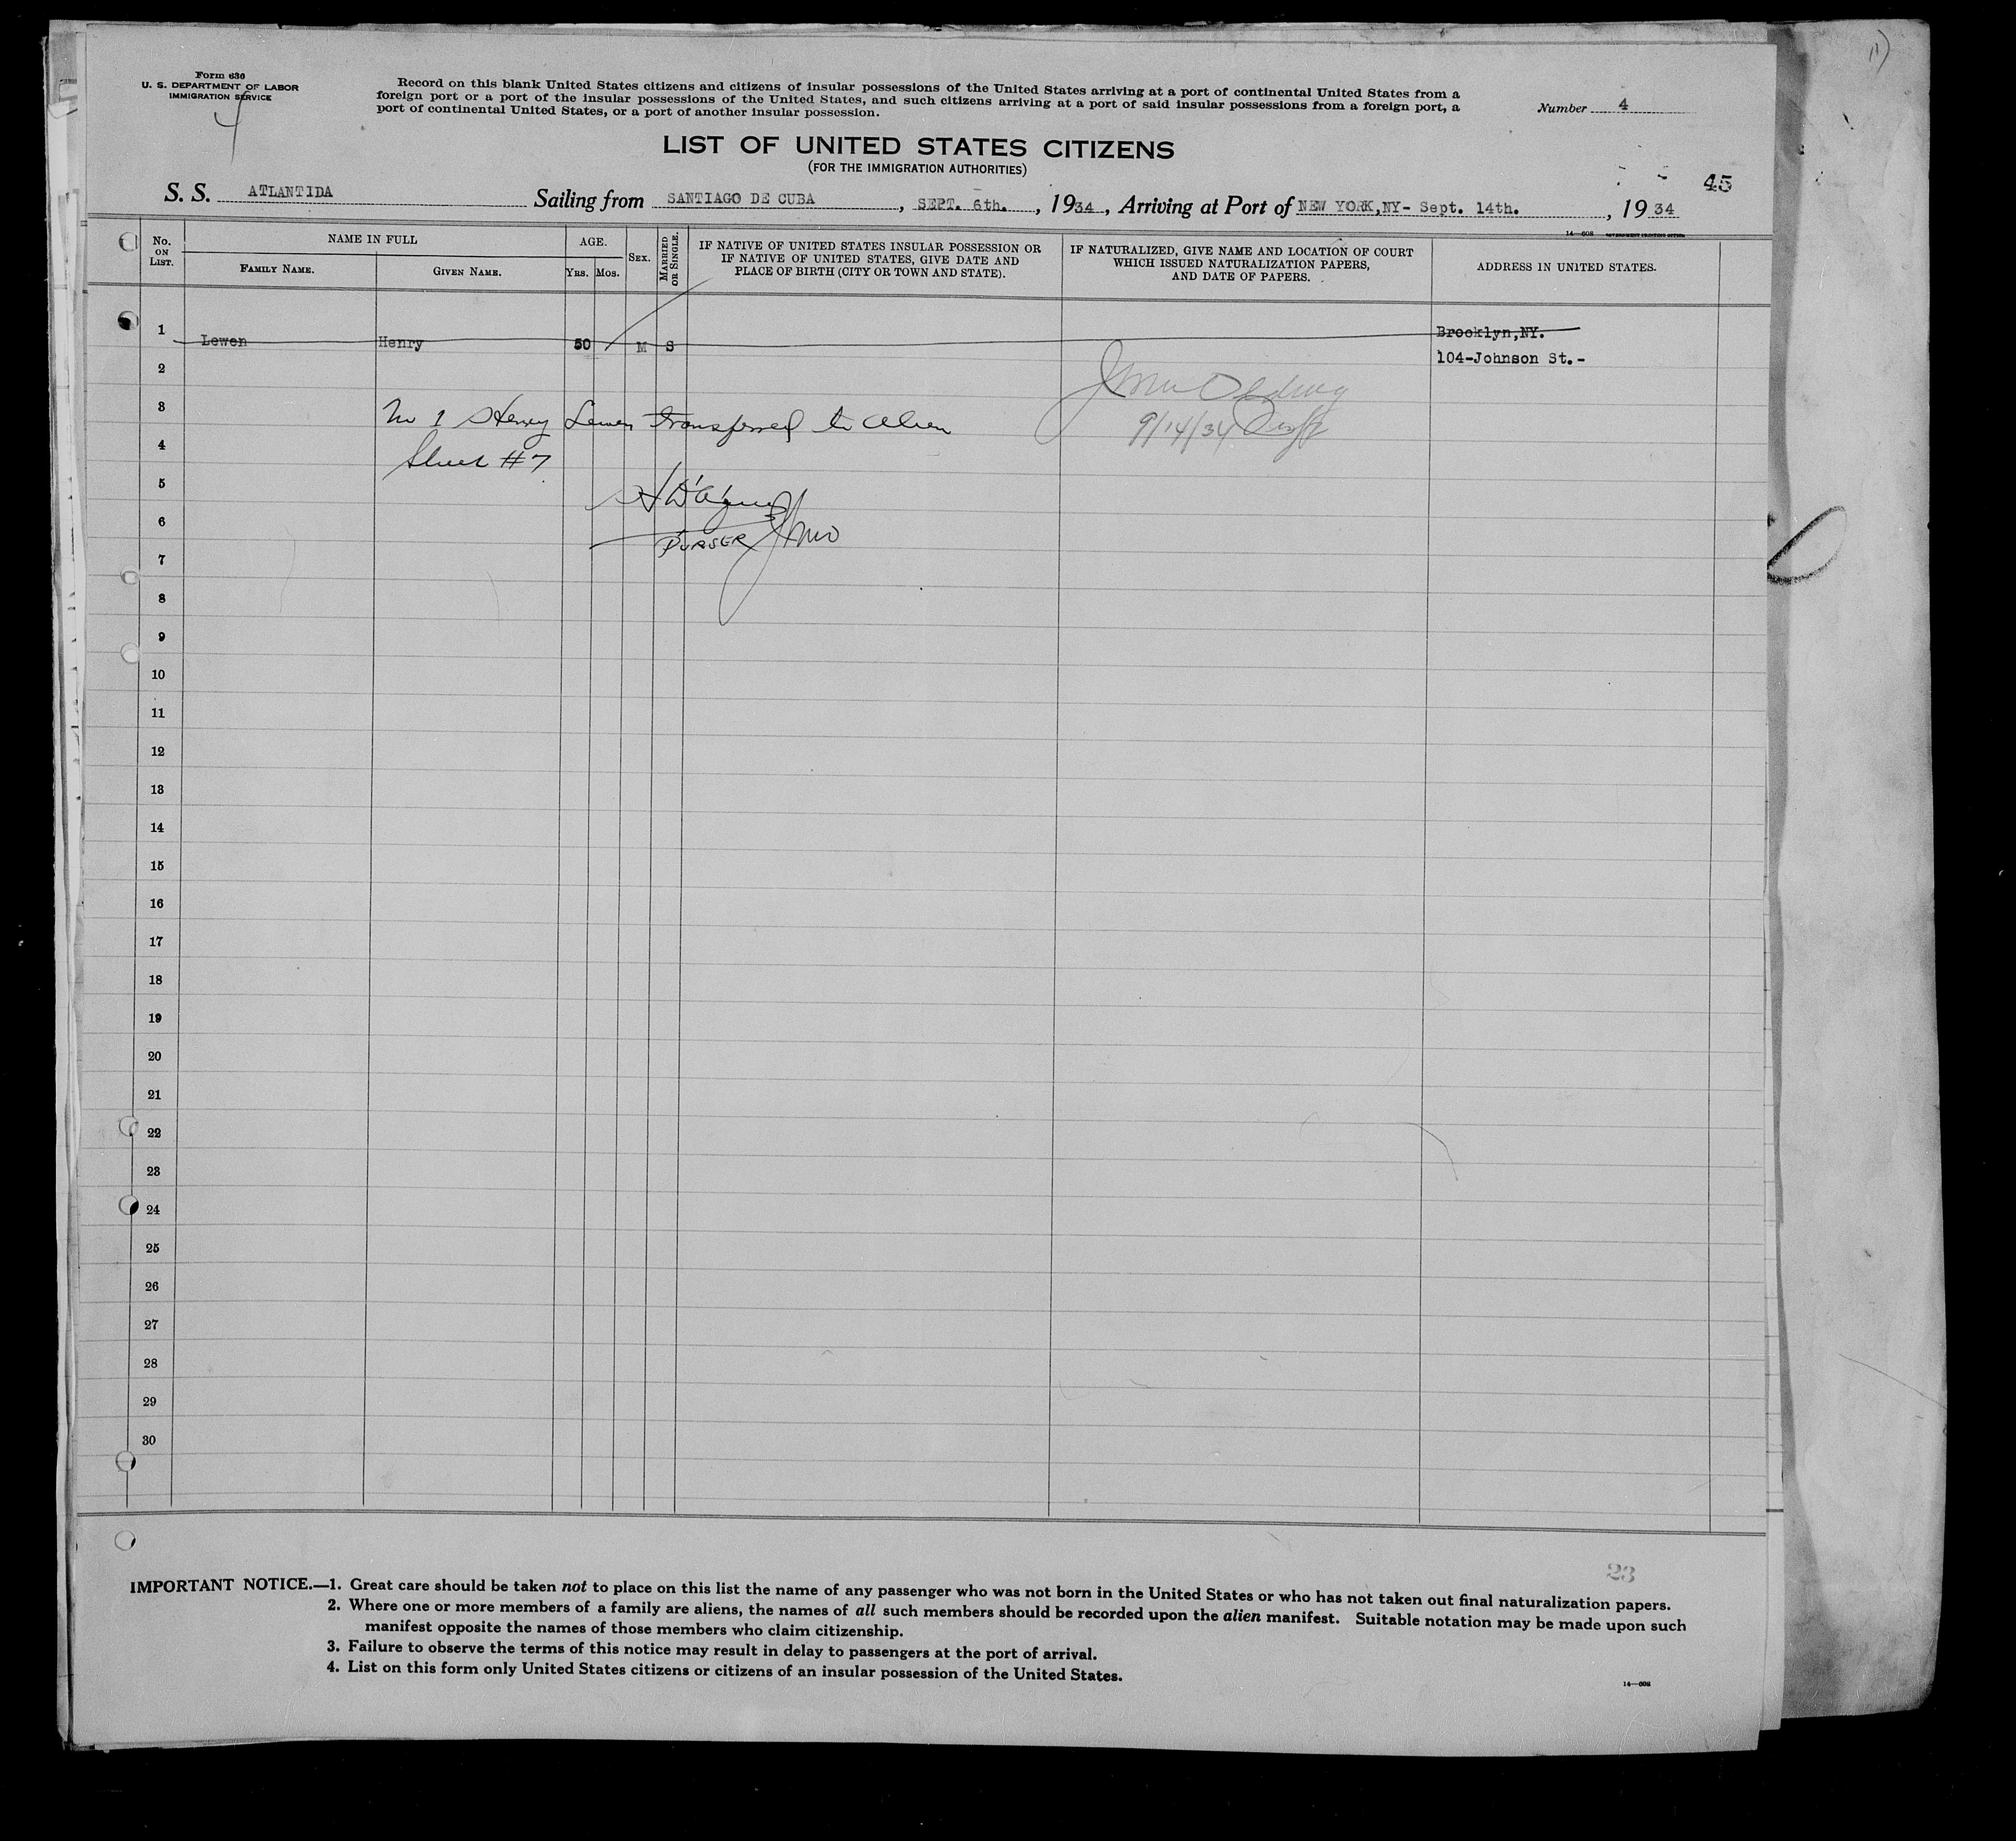 Form 630
U. S. DEPARTMENT OF LABOR
IMMIGRATION SERVICE
4
Record on this blank United States citizens and citizens of insular possessions of the United States arriving at a port of continental United States from a
foreign port or a port of the insular possessions of the United States, and such citizens arriving at a port of said insular possessions from a foreign port, a
port of continental United States, or a port of another insular possession.
Number 4
LIST OF UNITED STATES CITIZENS
(FOR THE IMMIGRATION AUTHORITIES)
45
S. S. ATLANTIDA Sailing from SANTIAGO DE CUBA, SEPT. 6th., 1934, Arriving at Port of NEW YORK,NY- Sept. 14th., 1934
14—608 GOVERNMENT PRINTING OFFICE
No. ON LIST.
NAME IN FULL
FAMILY NAME.
GIVEN NAME.
AGE.
YRS. MOS.
SEX.
MARRIED OR SINGLE.
IF NATIVE OF UNITED STATES INSULAR POSSESSION OR
IF NATIVE OF UNITED STATES, GIVE DATE AND
PLACE OF BIRTH (CITY OR TOWN AND STATE).
IF NATURALIZED, GIVE NAME AND LOCATION OF COURT
WHICH ISSUED NATURALIZATION PAPERS,
AND DATE OF PAPERS.
ADDRESS IN UNITED STATES.
1 Lewen Henry 50 M S Brooklyn,NY.
104-Johnson St.-
2
3 No 1 Henry Lewen transferred to Alien
9/14/34
4 Sheet #7
5
6
PURSER
7
8
9
10
11
12
13
14
15
16
17
18
19
20
21
22
23
24
25
26
27
28
29
30
23
IMPORTANT NOTICE.—1. Great care should be taken not to place on this list the name of any passenger who was not born in the United States or who has not taken out final naturalization papers.
2. Where one or more members of a family are aliens, the names of all such members should be recorded upon the alien manifest. Suitable notation may be made upon such
manifest opposite the names of those members who claim citizenship.
3. Failure to observe the terms of this notice may result in delay to passengers at the port of arrival.
4. List on this form only United States citizens or citizens of an insular possession of the United States.
14—608